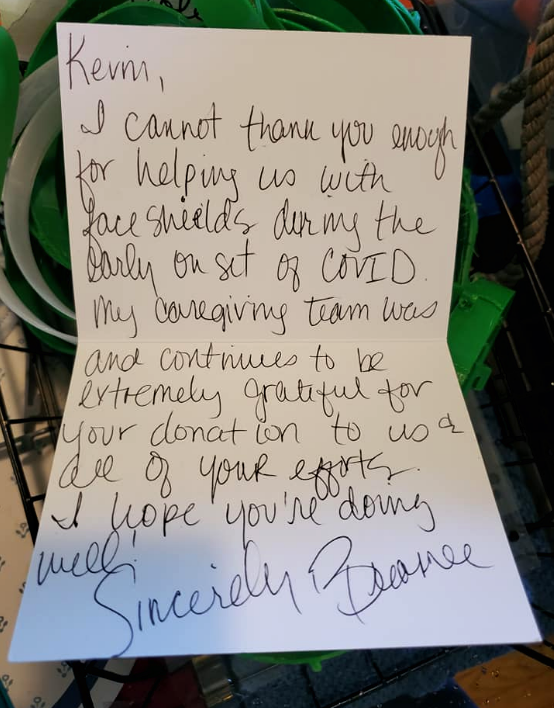 Kevin,
I cannot thank you enough
for helping us with
face shields during the
early onset of COVID.
My caregiving team was
and continues to be
extremely grateful for
your donation to us &
all of your efforts.
I hope you're doing
well!
Sincerely